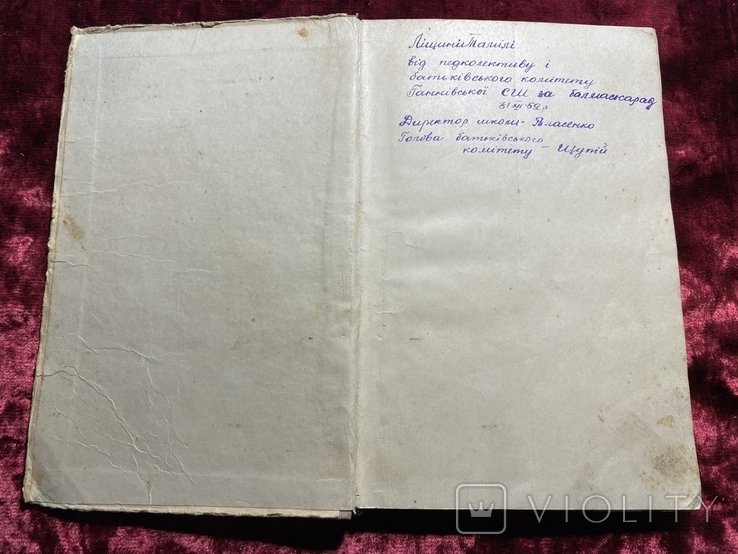 Ліщині Тамілі
від педколективу і
батьківського комітету
Ганнівської СШ за балмаскарад
31 XII-58 р
Директор школи - Власенко
Голова батьківського
комітету - Щупій
VIOLITY